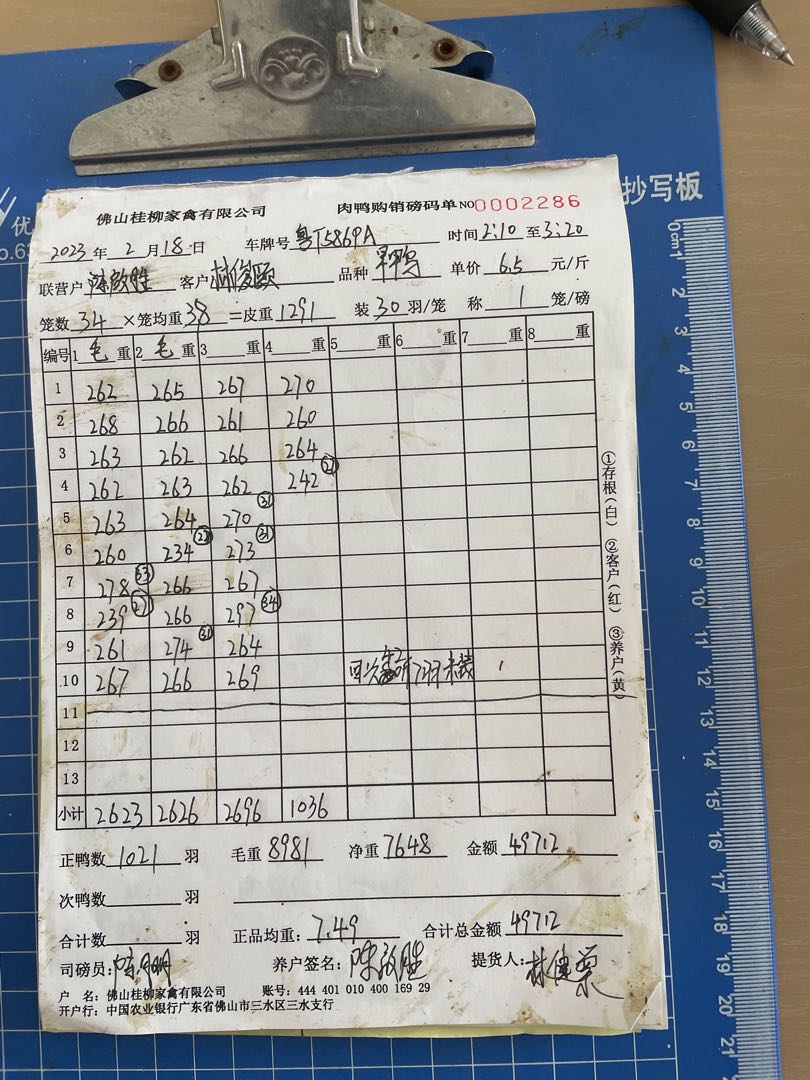 抄写板
优
佛山桂柳家禽有限公司 肉鸭购销磅码单 NO 0002286
2023 年 2 月 18 日 车牌号 粤T5869A 时间 2:10 至 3:20
联营户 陈啟胜 客户 品种 单价 6.5 元/斤
笼数 34 ×笼均重 38 =皮重 1291 装 30 羽/笼 称 1 笼/磅
编号 1 毛 重 2 毛 重 3 重 4 重 5 重 6 重 7 重 8 重
1 262 265 267 270
2 268 266 261 260
3 263 262 266 264
4 262 263 262 242 27
5 263 264 270 31
6 260 234 27 273 31
7 278 33 266 267
8 239 27 266 297 34
9 261 274 31 264
10 267 266 269
11
12
13
小计 2623 2626 2696 1036
正鸭数 1021 羽 毛重 8981 净重 7648 金额 49712
次鸭数 羽
合计数 羽 正品均重: 7.49 合计总金额 49712
司磅员: 养户签名: 陈啟胜 提货人:
户 名: 佛山桂柳家禽有限公司 账号: 444 401 010 400 169 29
开户行: 中国农业银行广东省佛山市三水区三水支行
①存根(白) ②客户(红) ③养户(黄)
0cm 1 2 3 4 5 6 7 8 9 10 11 12 13 14 15 16 17 18 19 20 21